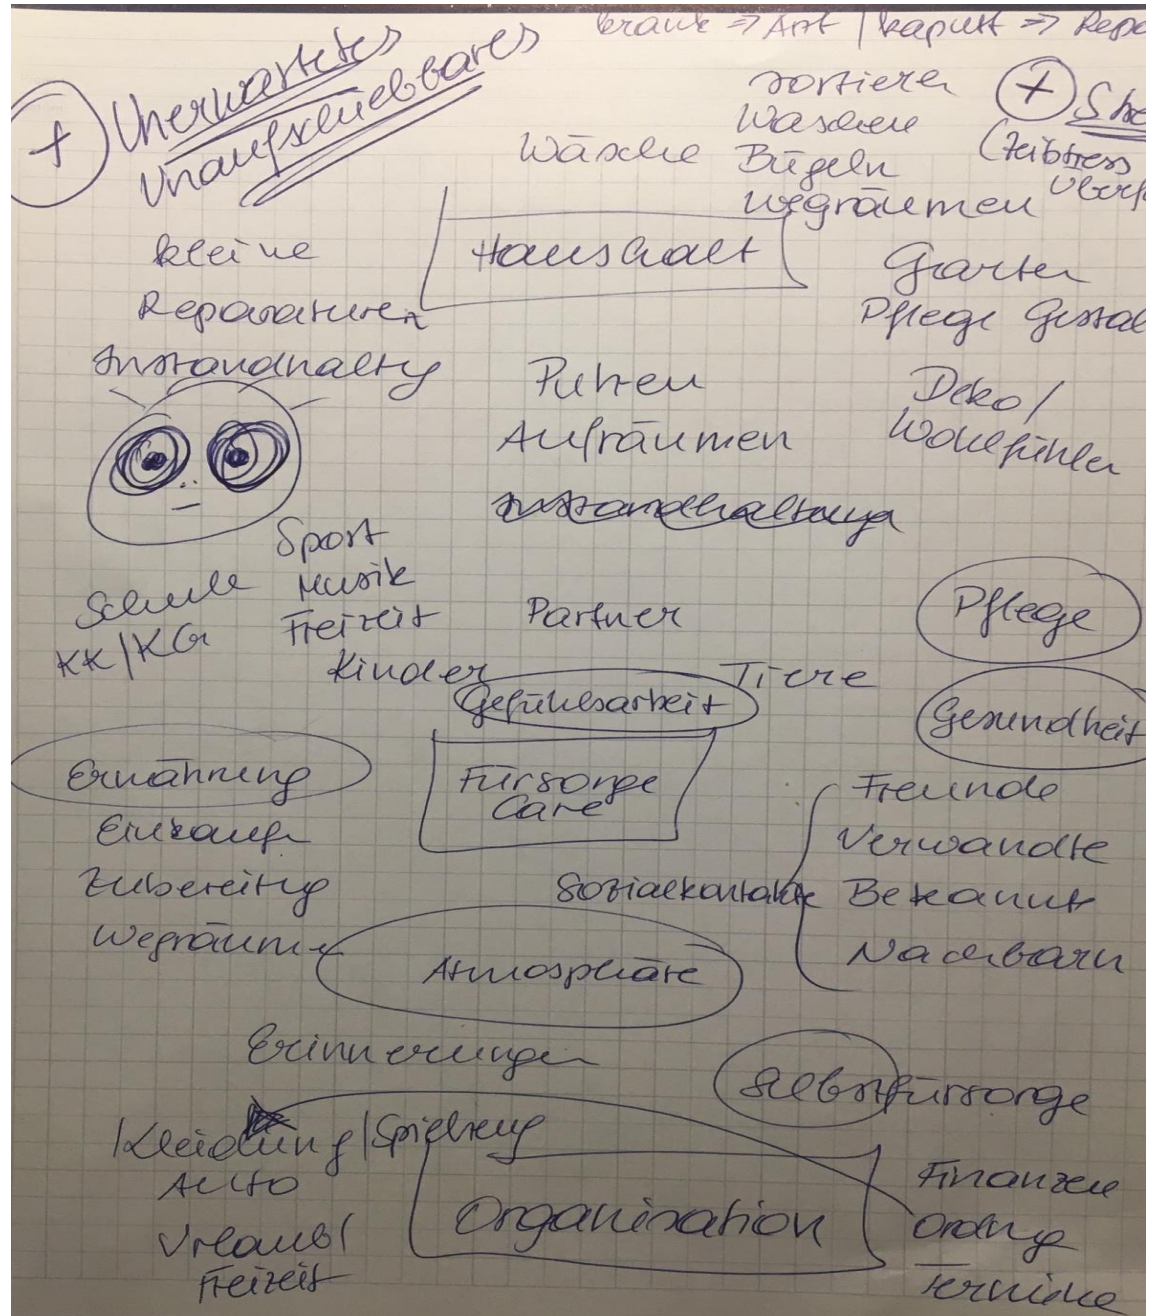 krank => Arzt / kaputt =>
+ Unerwartetes
Unaufschiebbares
sortieren
Waschen
Wäsche Bügeln
wegräumen
+
(Zeitstress
kleine
Reparaturen
Instandhaltg
Haushalt
Garten
Pflege
Putzen
Aufräumen
Instandhaltung
Deko/
Wohlfühlen
Sport
Musik
Freizeit
Schule
KK/KG
Kinder
Partner
Tiere
Pflege
Gefühlsarbeit
Gesundheit
Fürsorge
Care
Ernährung
Einkaufen
Zubereitg
Wegräumen
Sozialkontakte
Freunde
Verwandte
Bekannte
Nachbarn
Atmosphäre
Erinnerungen
Selbstfürsorge
/Kleidung/Spielzeug
Auto
Urlaub/
Freizeit
Organisation
Finanzen
Ordng
Termine